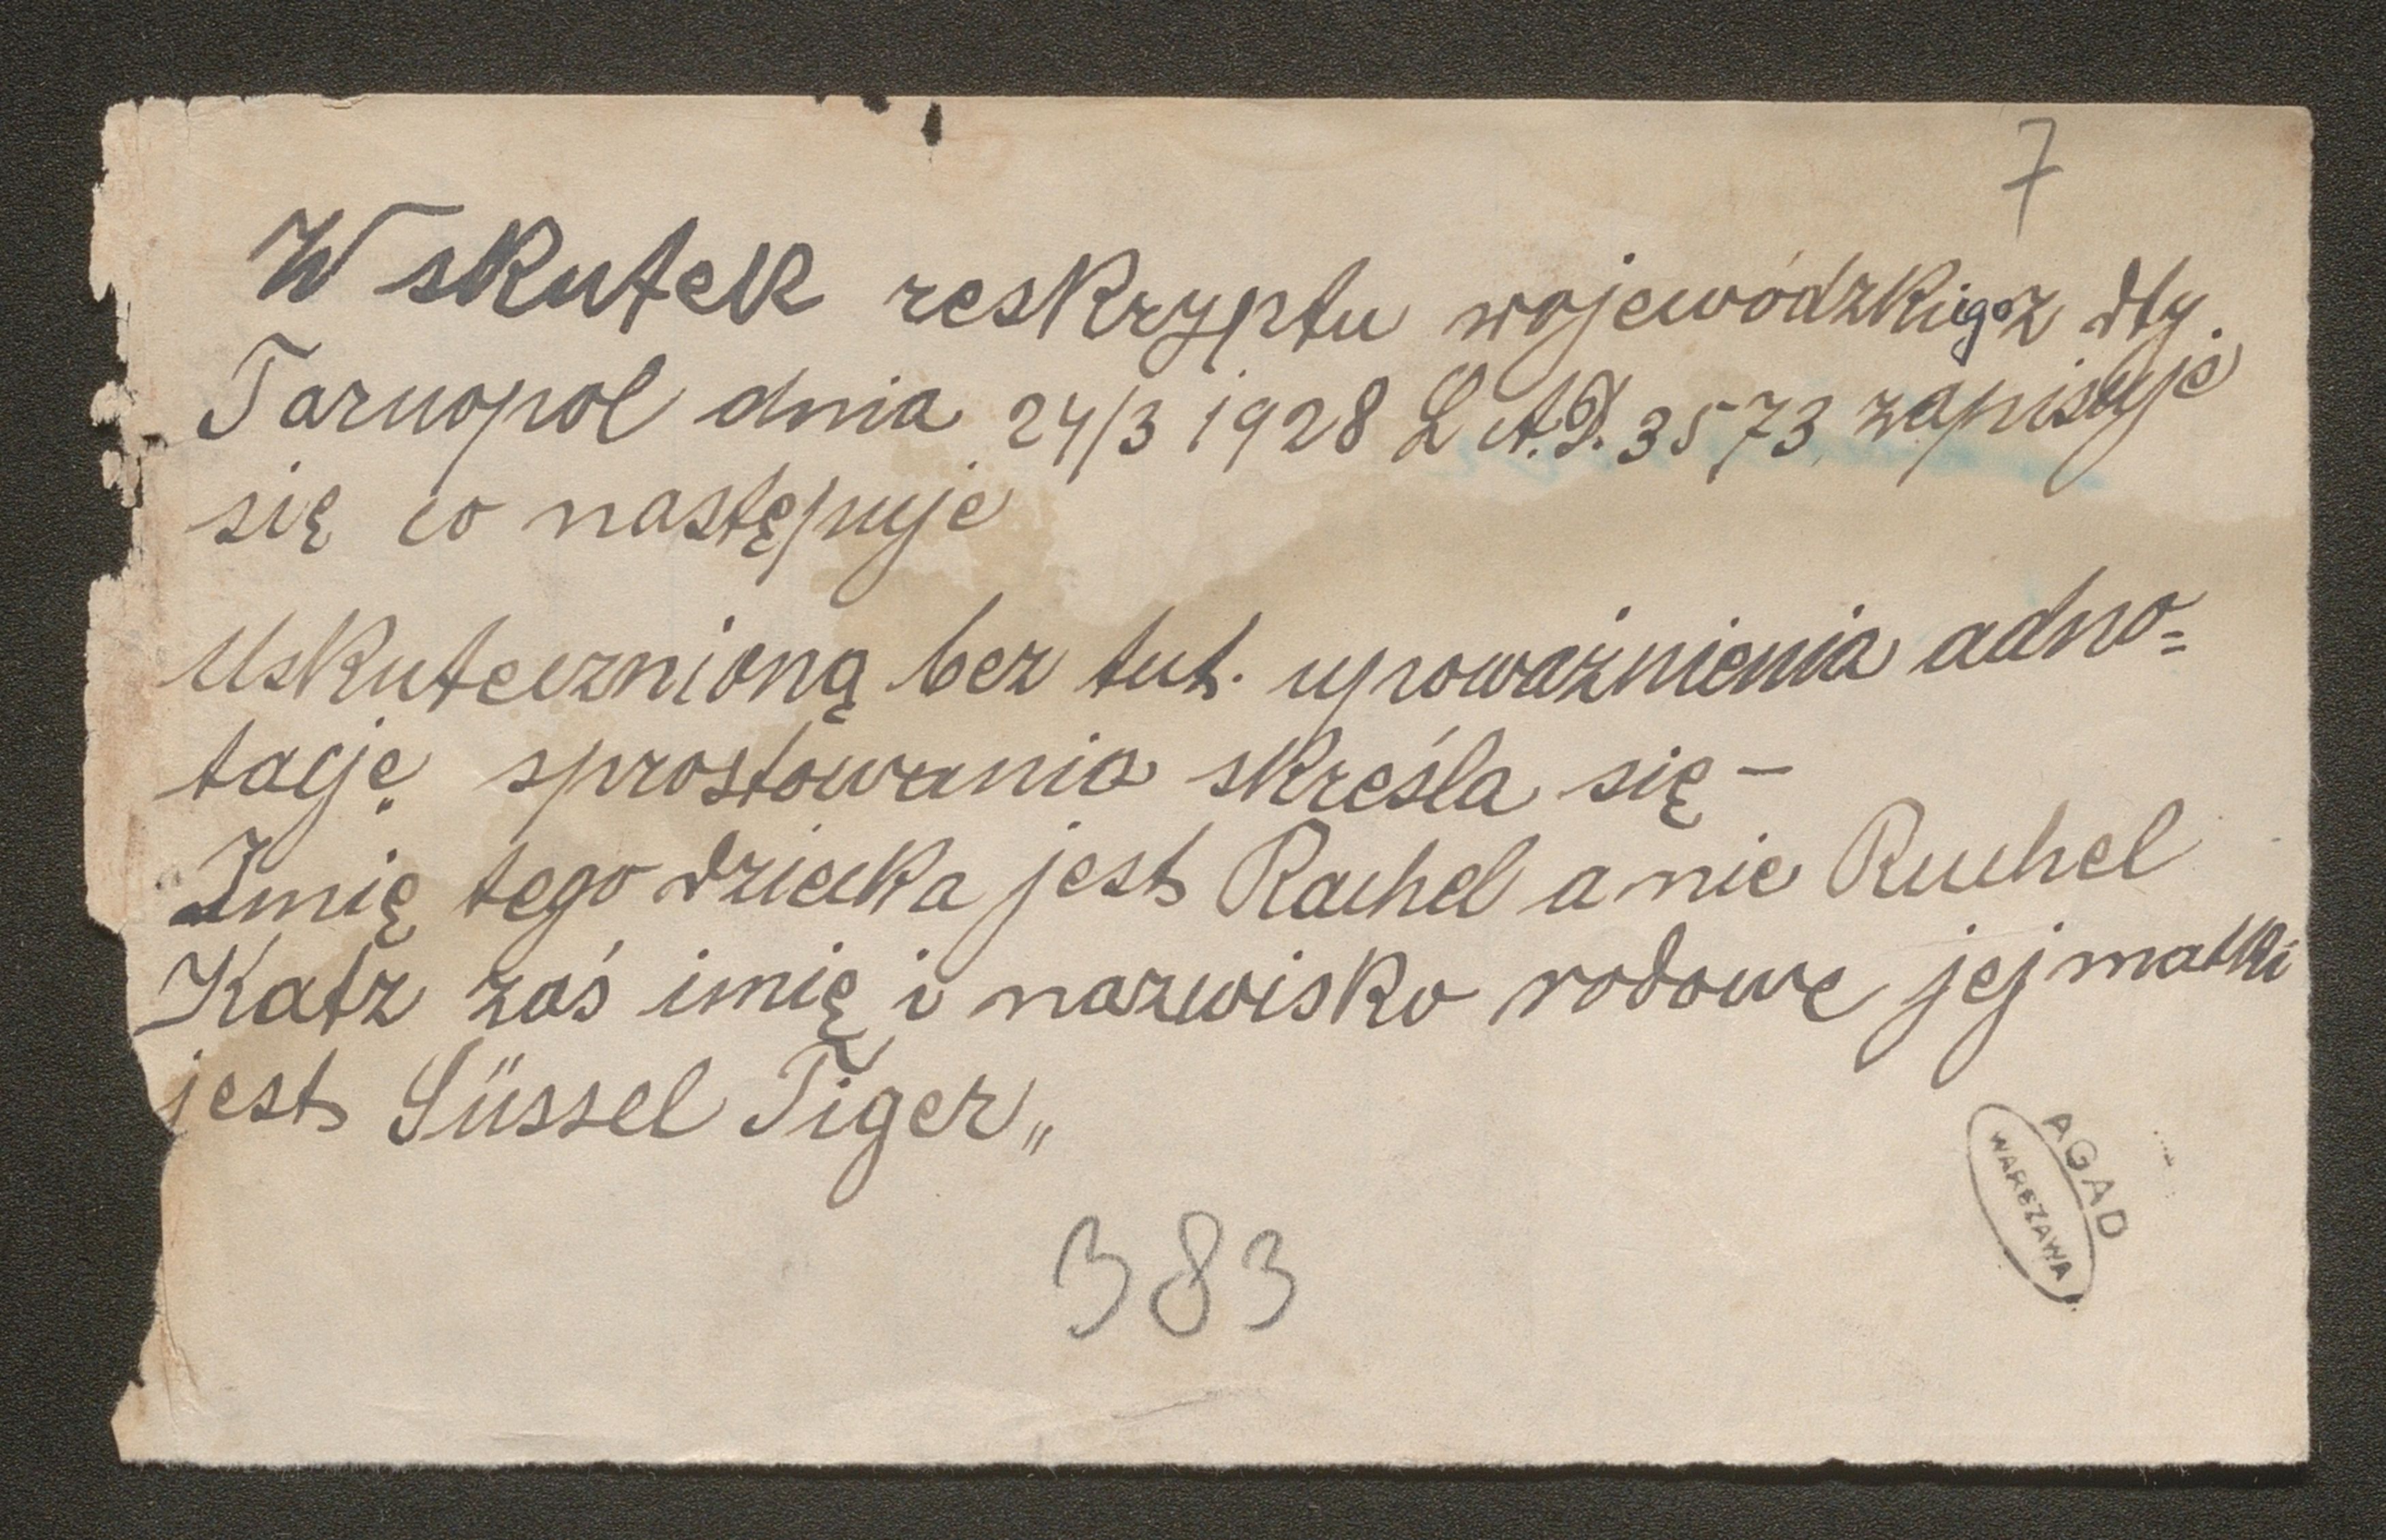 7
W skutek reskryptu wojewódzkigo z dty.
Tarnopol dnia 24/3 1928 L A.D. 3573, zapisuje
się co następuje
Uskutecznioną bez tut. upoważnienia adno=
tację sprostowania skreśla się –
„Imię tego dziecka jest Rachel a nie Ruchel
Katz zaś imię i nazwisko rodowe jej matki
jest Süssel Tiger„
383
AGAD
WARSZAWA